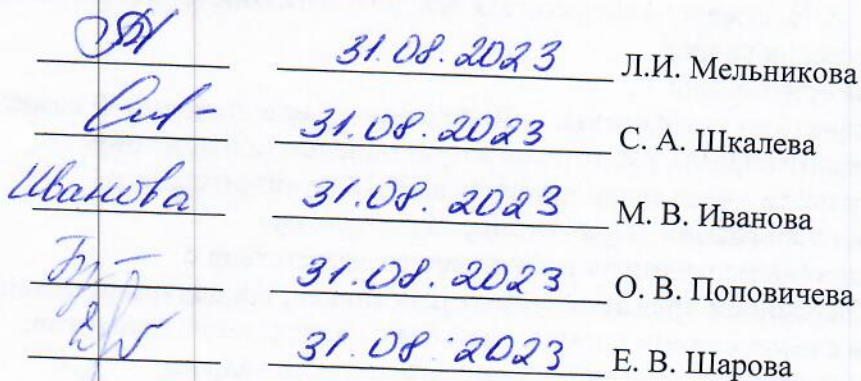 31.08.2023 Л.И. Мельникова
31.08.2023 С. А. Шкалева
Иванова 31.08.2023 М. В. Иванова
31.08.2023 О. В. Поповичева
31.08.2023 Е. В. Шарова